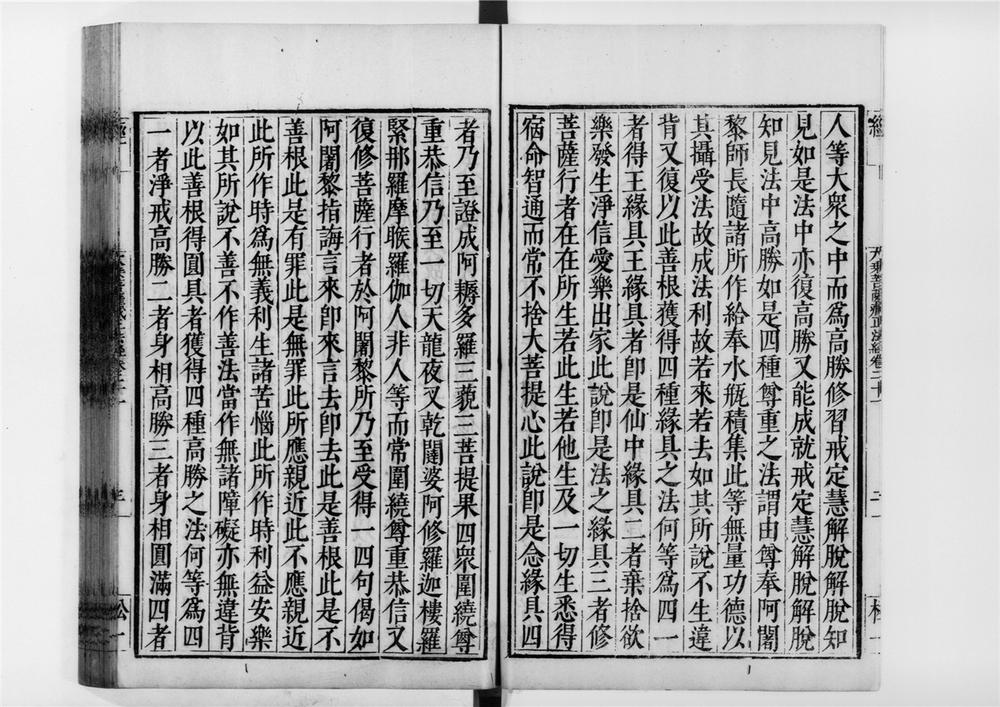 人等大衆之中而爲高勝修習戒定慧解脫解脫知
見如是法中亦復高勝又能成就戒定慧解脫解脫
知見法中高勝如是四種尊重之法謂由尊奉阿闍
黎師長隨諸所作給奉水瓶積集此等無量功德以
其攝受法故成法利故若來若去如其所說不生違
背又復以此善根獲得四種緣具之法何等爲四一
者得王緣具王緣具者卽是仙中緣具二者棄捨欲
樂發生淨信愛樂出家此說卽是法之緣具三者修
菩薩行者在在所生若此生若他生及一切生悉得
宿命智通而常不捨大菩提心此說卽是念緣具四
者乃至證成阿耨多羅三藐三菩提果四衆圍繞尊
重恭信乃至一切天龍夜叉乾闥婆阿修羅迦樓羅
緊那羅摩睺羅伽人非人等而常圍繞尊重恭信又
復修菩薩行者於阿闍黎所乃至受得一四句偈如
阿闍黎指誨言來卽來言去卽去此是善根此是不
善根此是有罪此是無罪此所應親近此不應親近
此所作時爲無義利生諸苦惱此所作時利益安樂
如其所說不善不作善法當作無諸障礙亦無違背
以此善根得圓具者獲得四種高勝之法何等爲四
一者淨戒高勝二者身相高勝三者身相圓滿四者